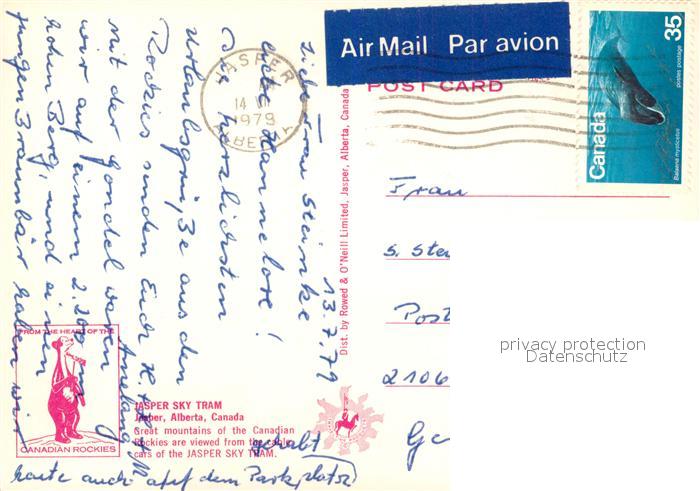 Air Mail Par avion
35
postes postage
Canada
Balaena mysticetus
JASPER
14
1979
ALBERTA
POST CARD
13.7.79
Liebe Frau Steinke
liebe Hannelore!
Die herzlichsten
Urlaubsgrüße aus den
Rockies senden Euch
Mit der Gondel waren
wir auf einem 2.200 m
hohen Berg, und einen
jungen Braunbär haben wir
heute auch auf dem Parkplatz
Frau
S. Stei
Post
2106
Ge
Dist. by Rowed & O'Neill Limited, Jasper, Alberta, Canada
privacy protection
Datenschutz
FROM THE HEART OF THE
CANADIAN ROCKIES
JASPER SKY TRAM
Jasper, Alberta, Canada
Great mountains of the Canadian
Rockies are viewed from the cable
cars of the JASPER SKY TRAM.